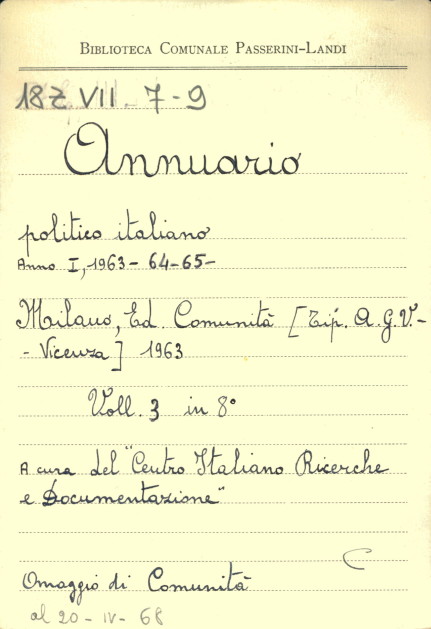 BIBLIOTECA COMUNALE PASSERINI-LANDI
18Z. VII. 7-9
Annuario
politico italiano
Anno I, 1963 - 64-65-
Milano, Ed. Comunità [Tip. A.G.V.-
- Vicenza] 1963
Voll. 3 in 8°
A cura del "Centro Italiano Ricerche
e Documentazione"
C
Omaggio di Comunità
al 20-IV-68